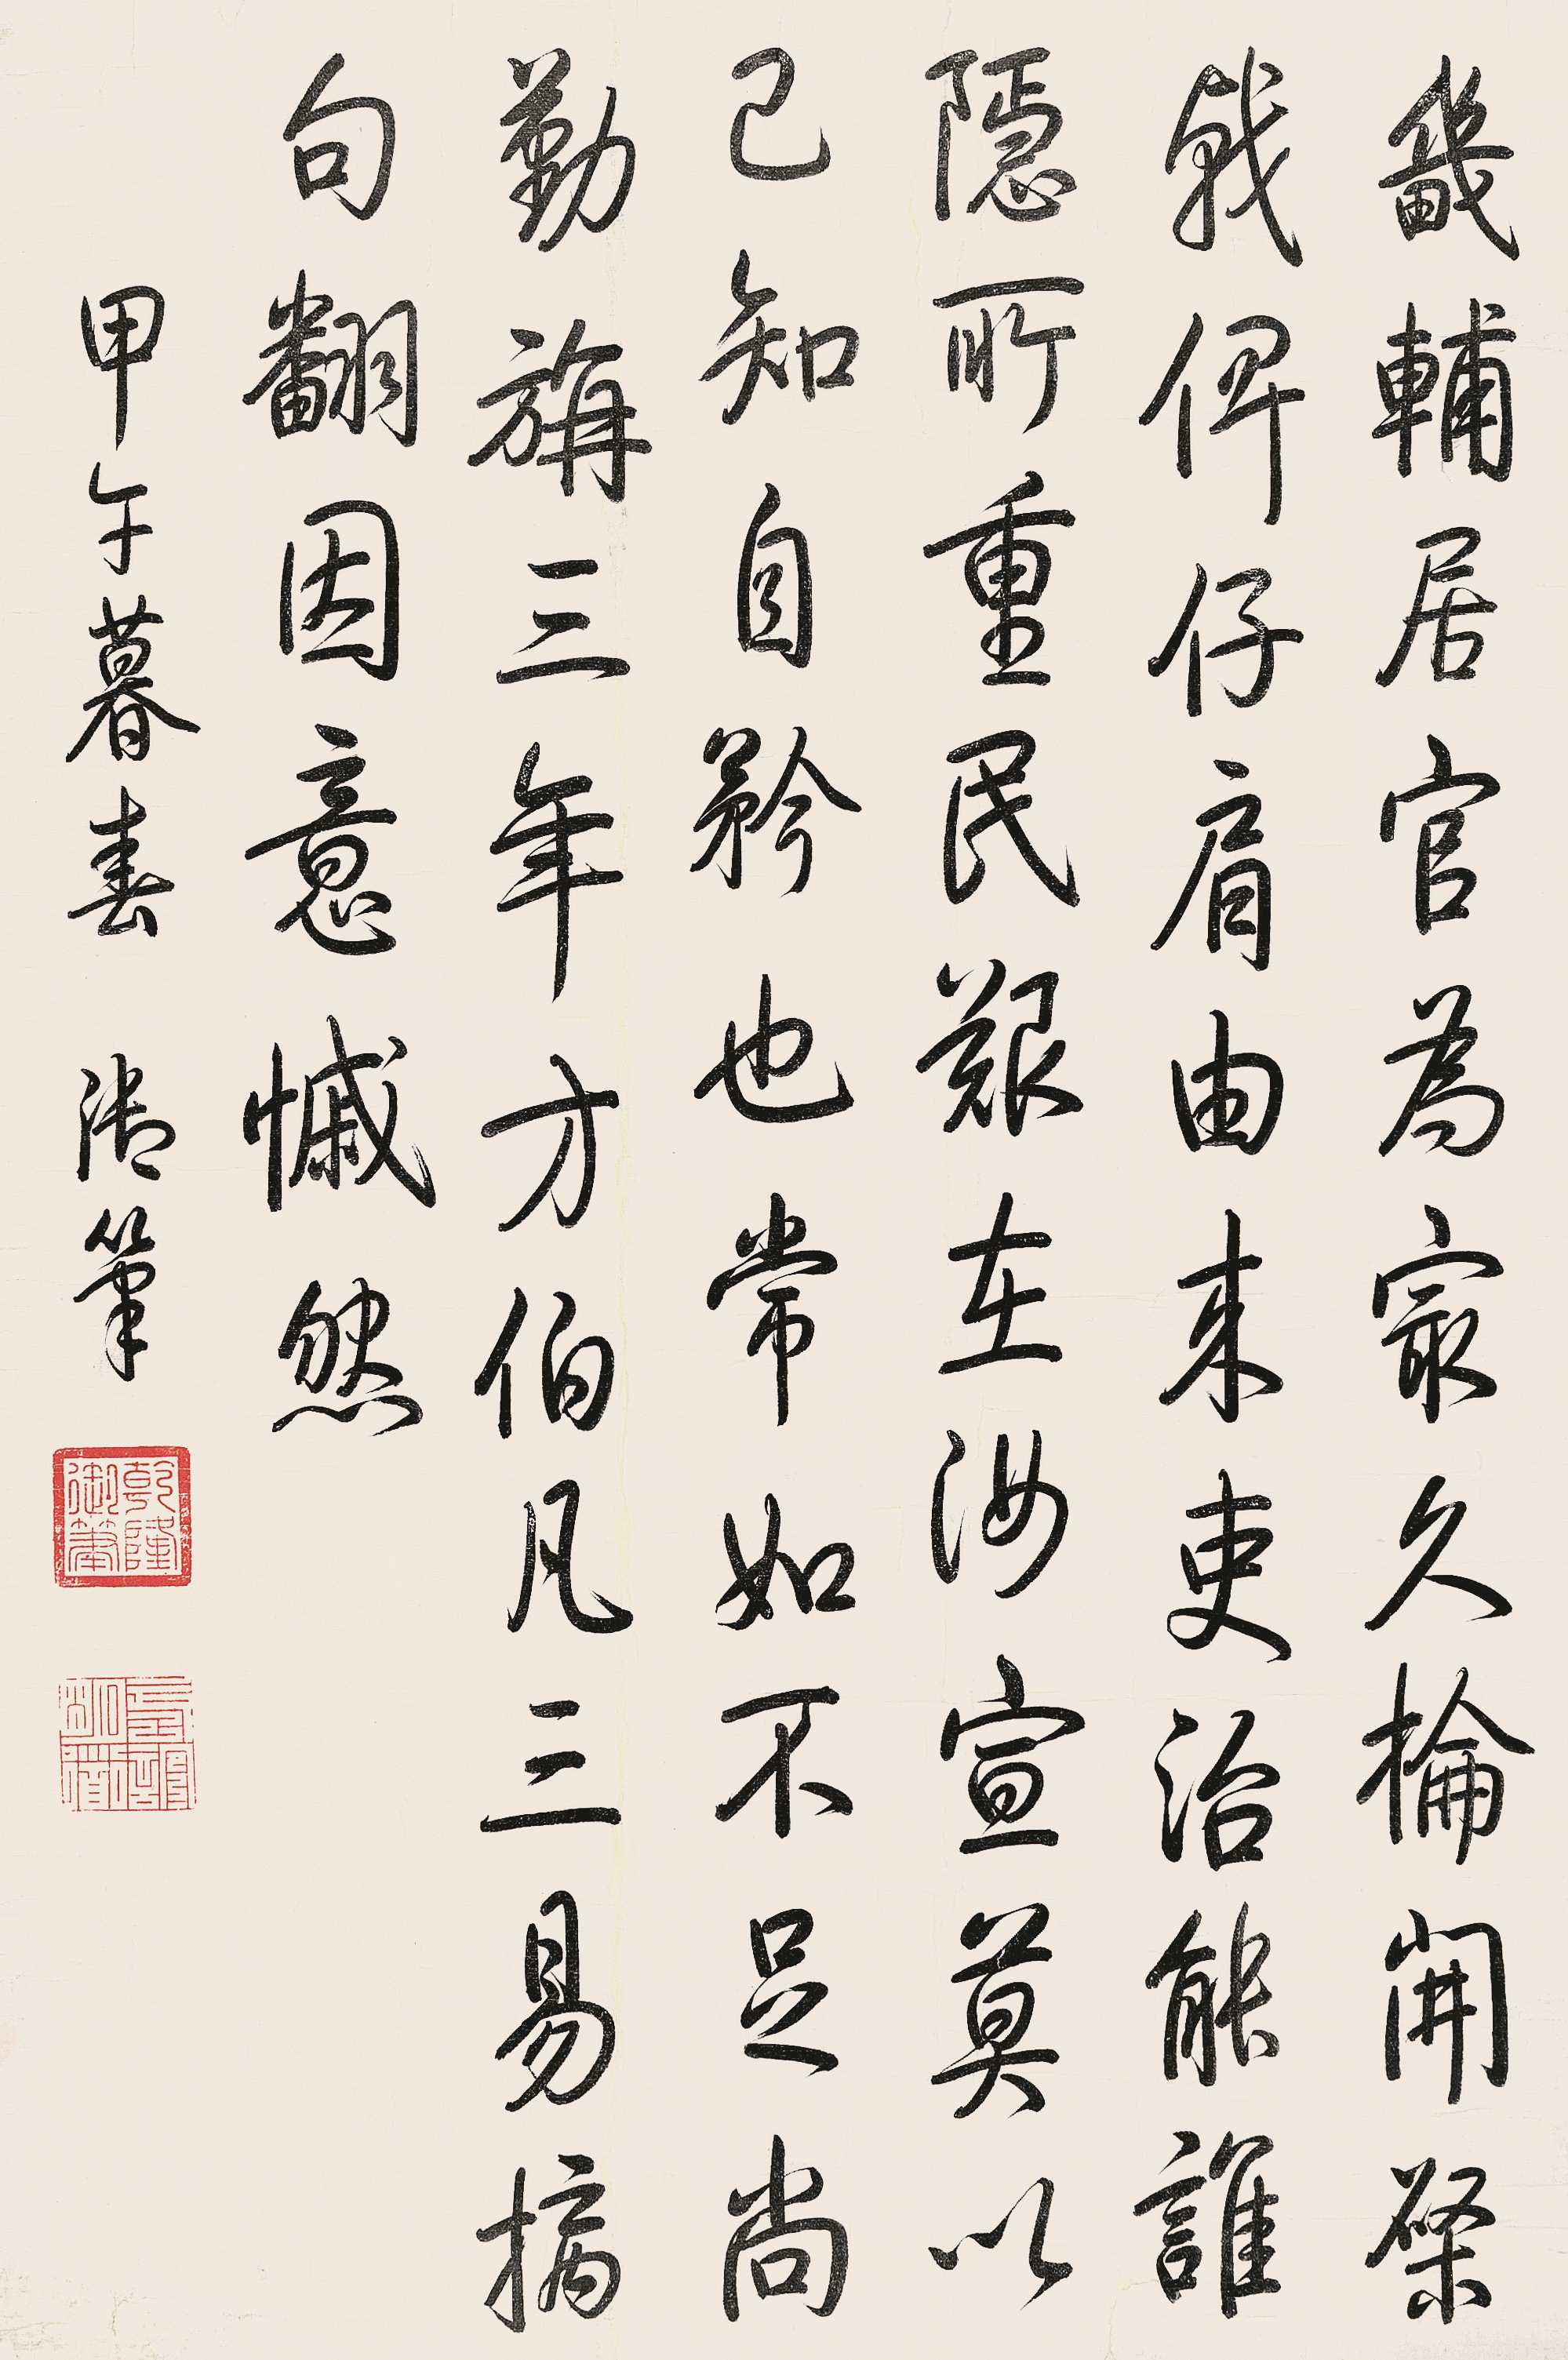 畿輔居官為最久掄開棨
戟俾仔肩由来吏治能誰
隱所重民艱在汝宣莫以
已知自矜也常如不足尚
勤旃三年方伯凡三易摛
句翻因意慽然
甲午暮春 御筆
乾隆御筆